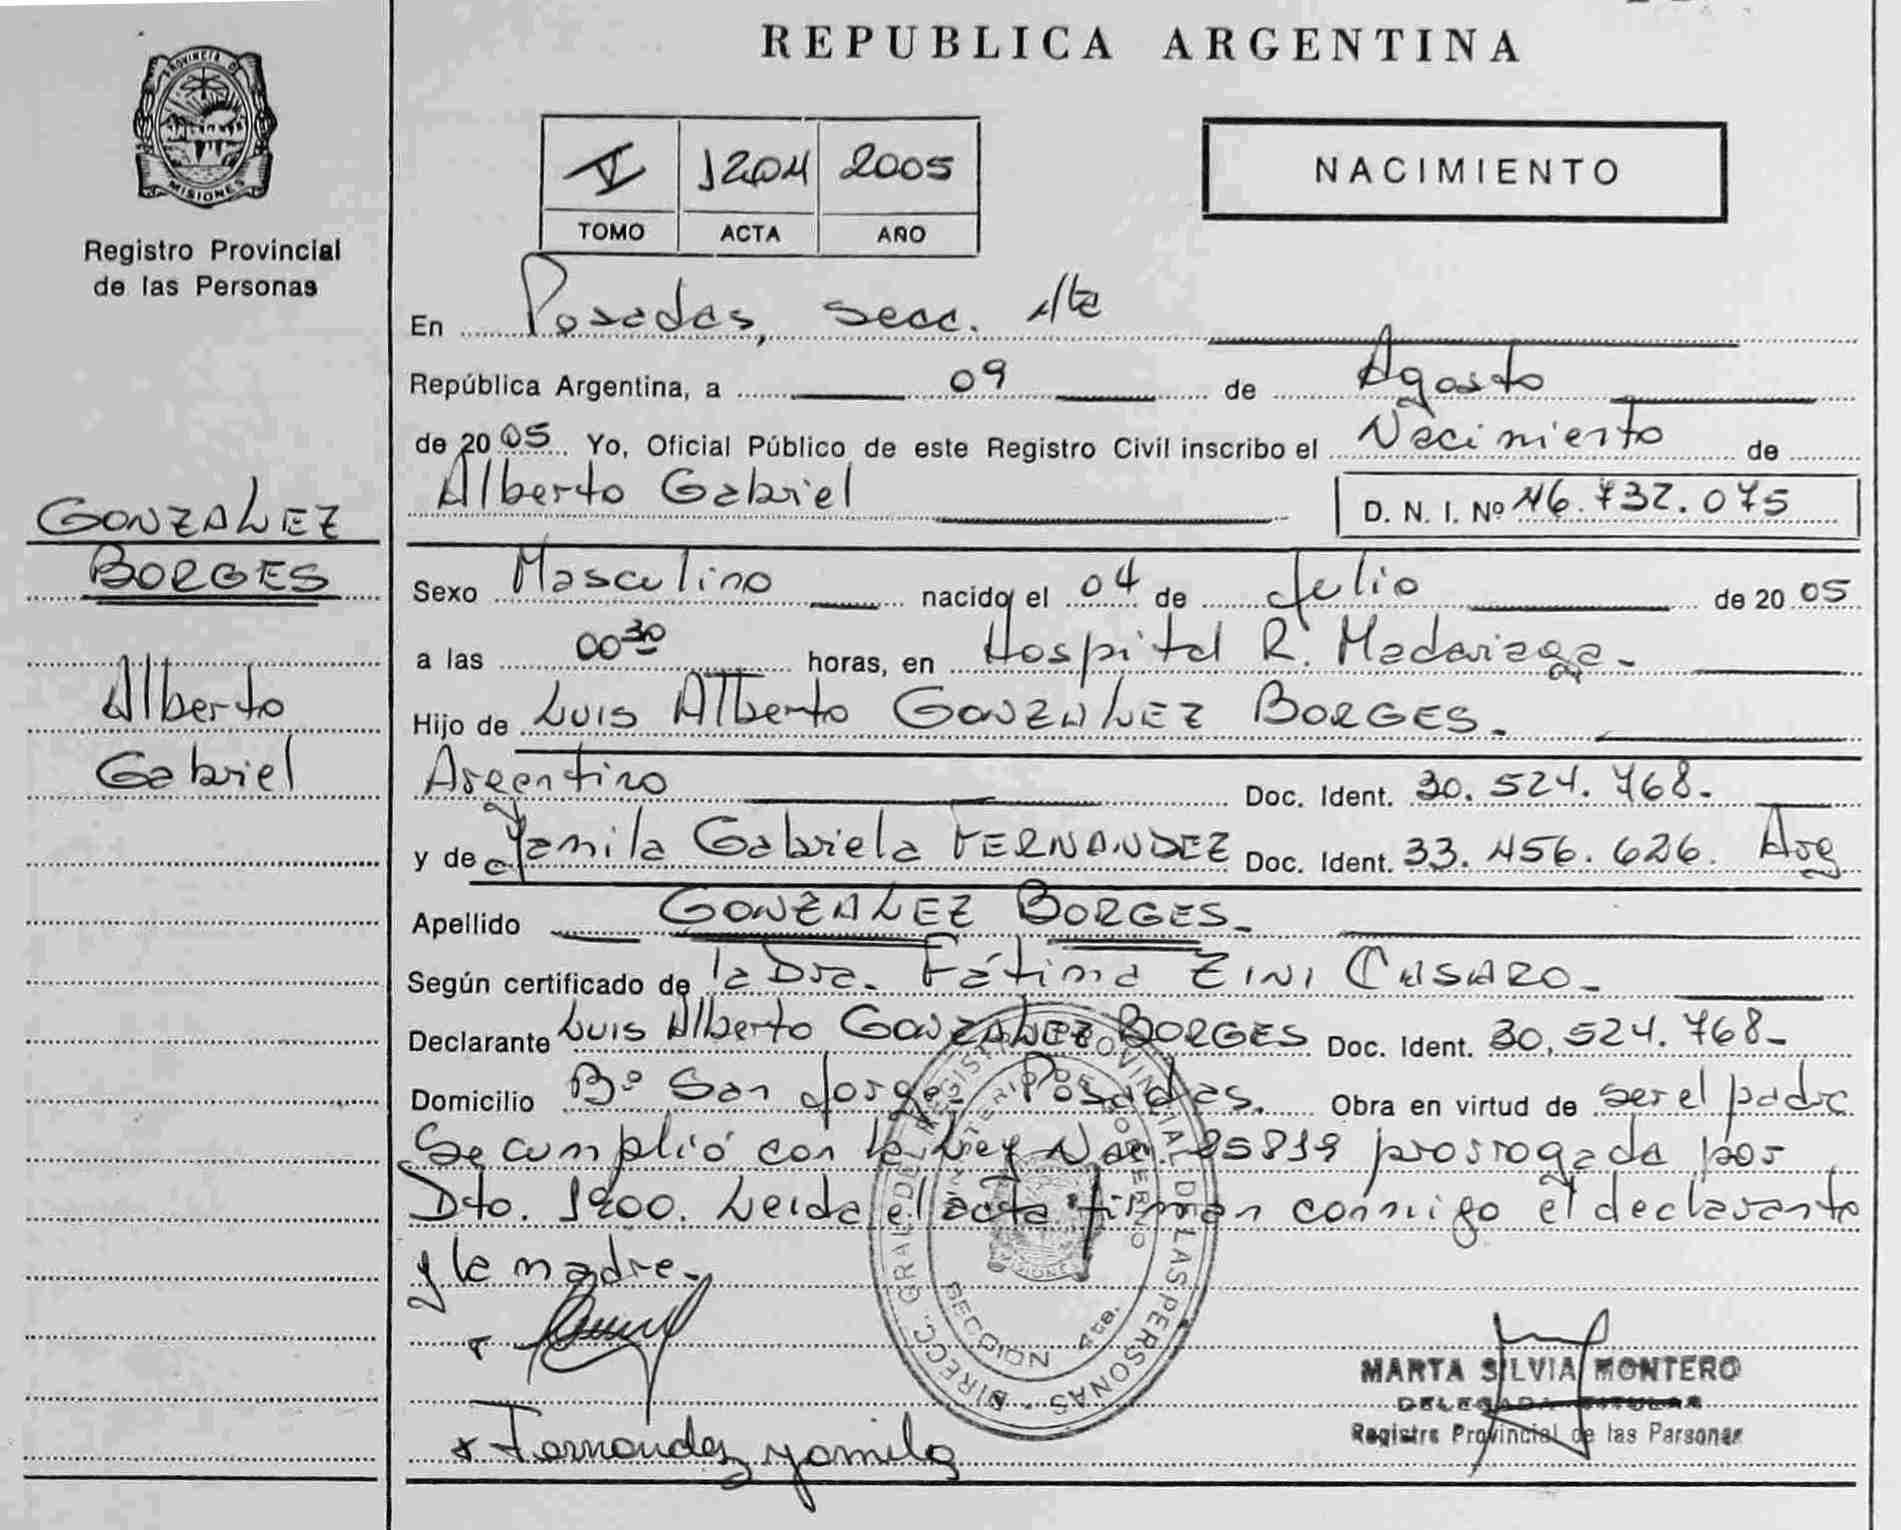 REPUBLICA ARGENTINA
PROVINCIA DE
MISIONES
Registro Provincial
de las Personas
1204 2005
TOMO ACTA AÑO
NACIMIENTO
En Posadas, secc. 4ta
República Argentina, a 09 de Agosto
de 2005 Yo, Oficial Público de este Registro Civil inscribo el Nacimiento de
Alberto Gabriel D. N. I. Nº 46.732.075
GONZALEZ
BORGES
Alberto
Gabriel
Sexo Masculino nacido el 04 de Julio de 2005
a las 00 30 horas, en Hospital R. Madariaga.
Hijo de Luis Alberto GONZALEZ BORGES.
Argentino Doc. Ident. 30.524.768.
y de Yamila Gabriela FERNANDEZ Doc. Ident. 33.456.626. Arg
Apellido GONZALEZ BORGES.
Según certificado de la Dra. Fátima ZINI CASARO.
Declarante Luis Alberto GONZALEZ BORGES Doc. Ident. 30.524.768-
Domicilio Bº San Jorge Posadas. Obra en virtud de ser el padre
Se cumplió con la Ley Nac. 25819 prorrogada por
Dto. 1900. Leida el acta firman conmigo el declarante
y la madre.
DIRECC. GRAL DE REGISTRO PROVINCIAL DE LAS PERSONAS
MINISTERIO DE GOBIERNO
SECCION 4ta.
MISIONES
x Fernandez yamila
MARTA SILVIA MONTERO
DELEGADA TITULAR
Registro Provincial de las Personas